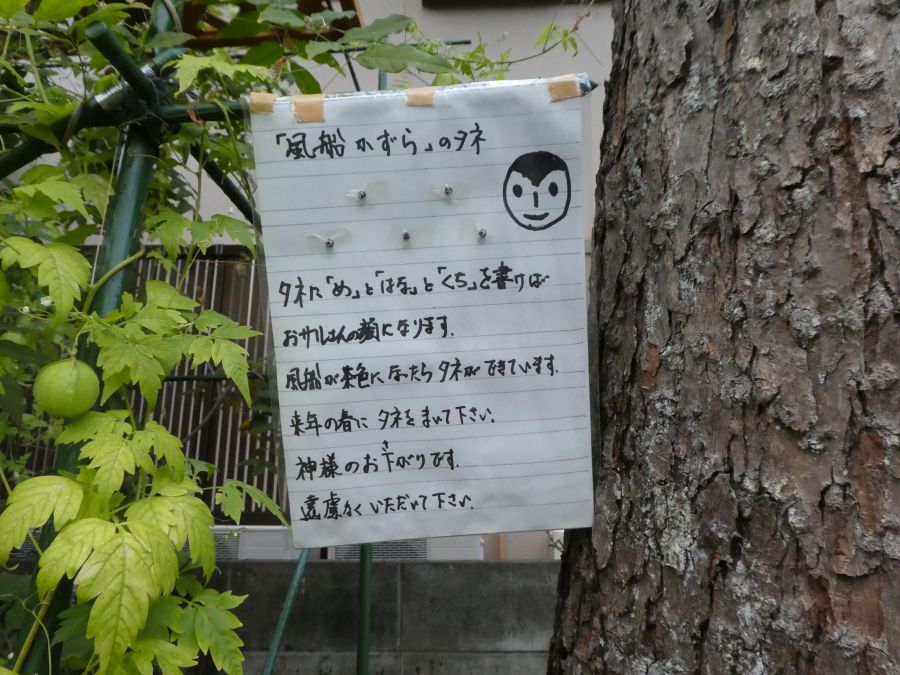 「風船かずら」のタネ
タネに「め」と「はな」と「くち」を書けば
おサルさんの顔になります。
風船が茶色になったらタネができています。
来年の春にタネをまいて下さい。
神様のお下がりです。
さ
遠慮なくいただいて下さい。